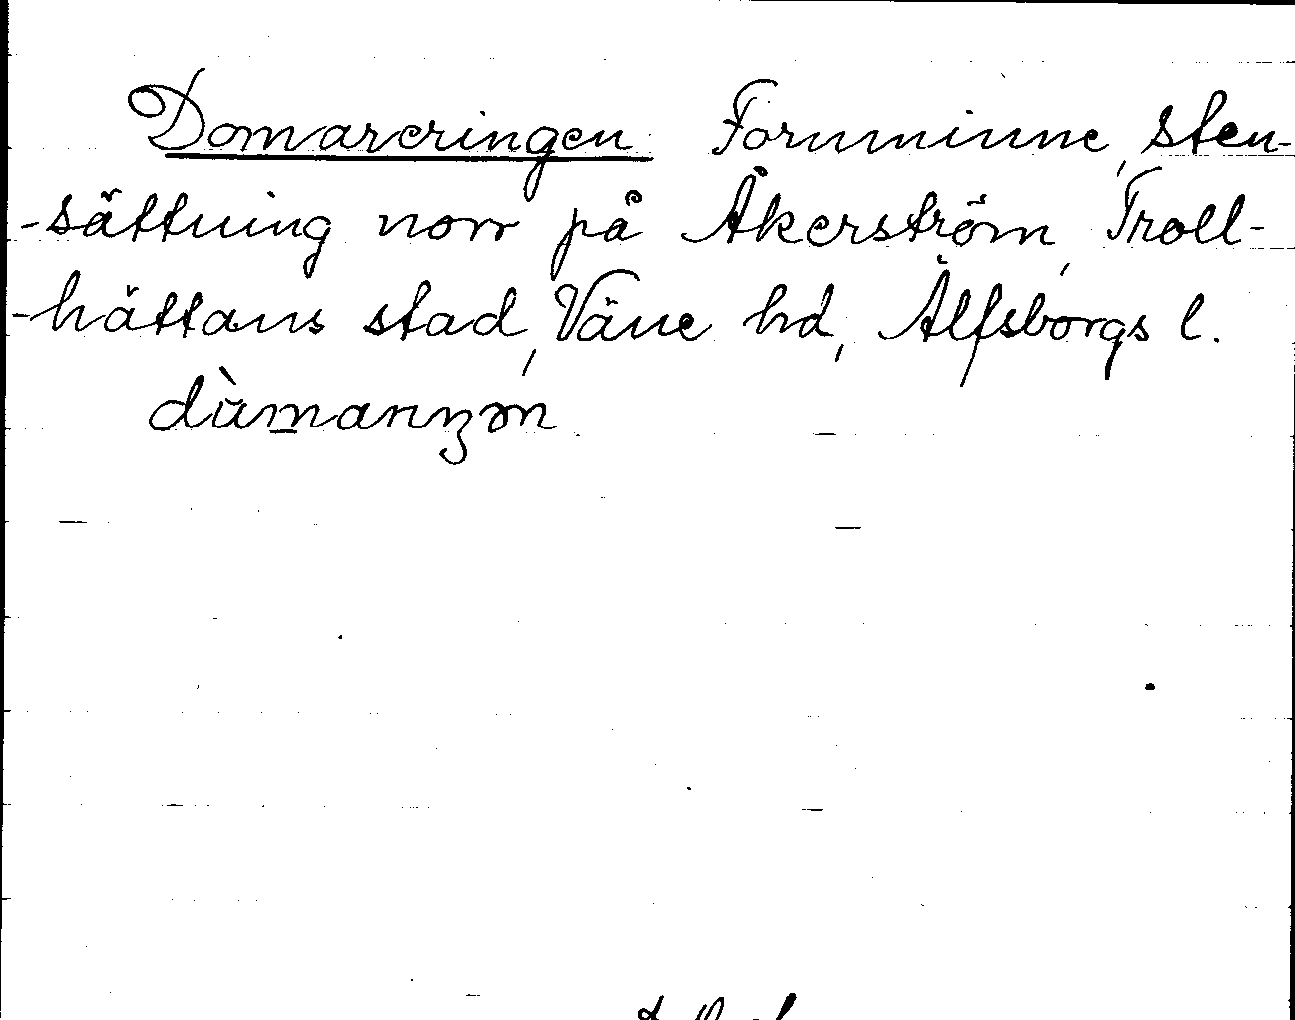 Domareringen Fornminne, sten-
-sättning norr på Åkerström, Troll-
-hättans stad, Väne hd, Älfsborgs l.
dùmarıŋən